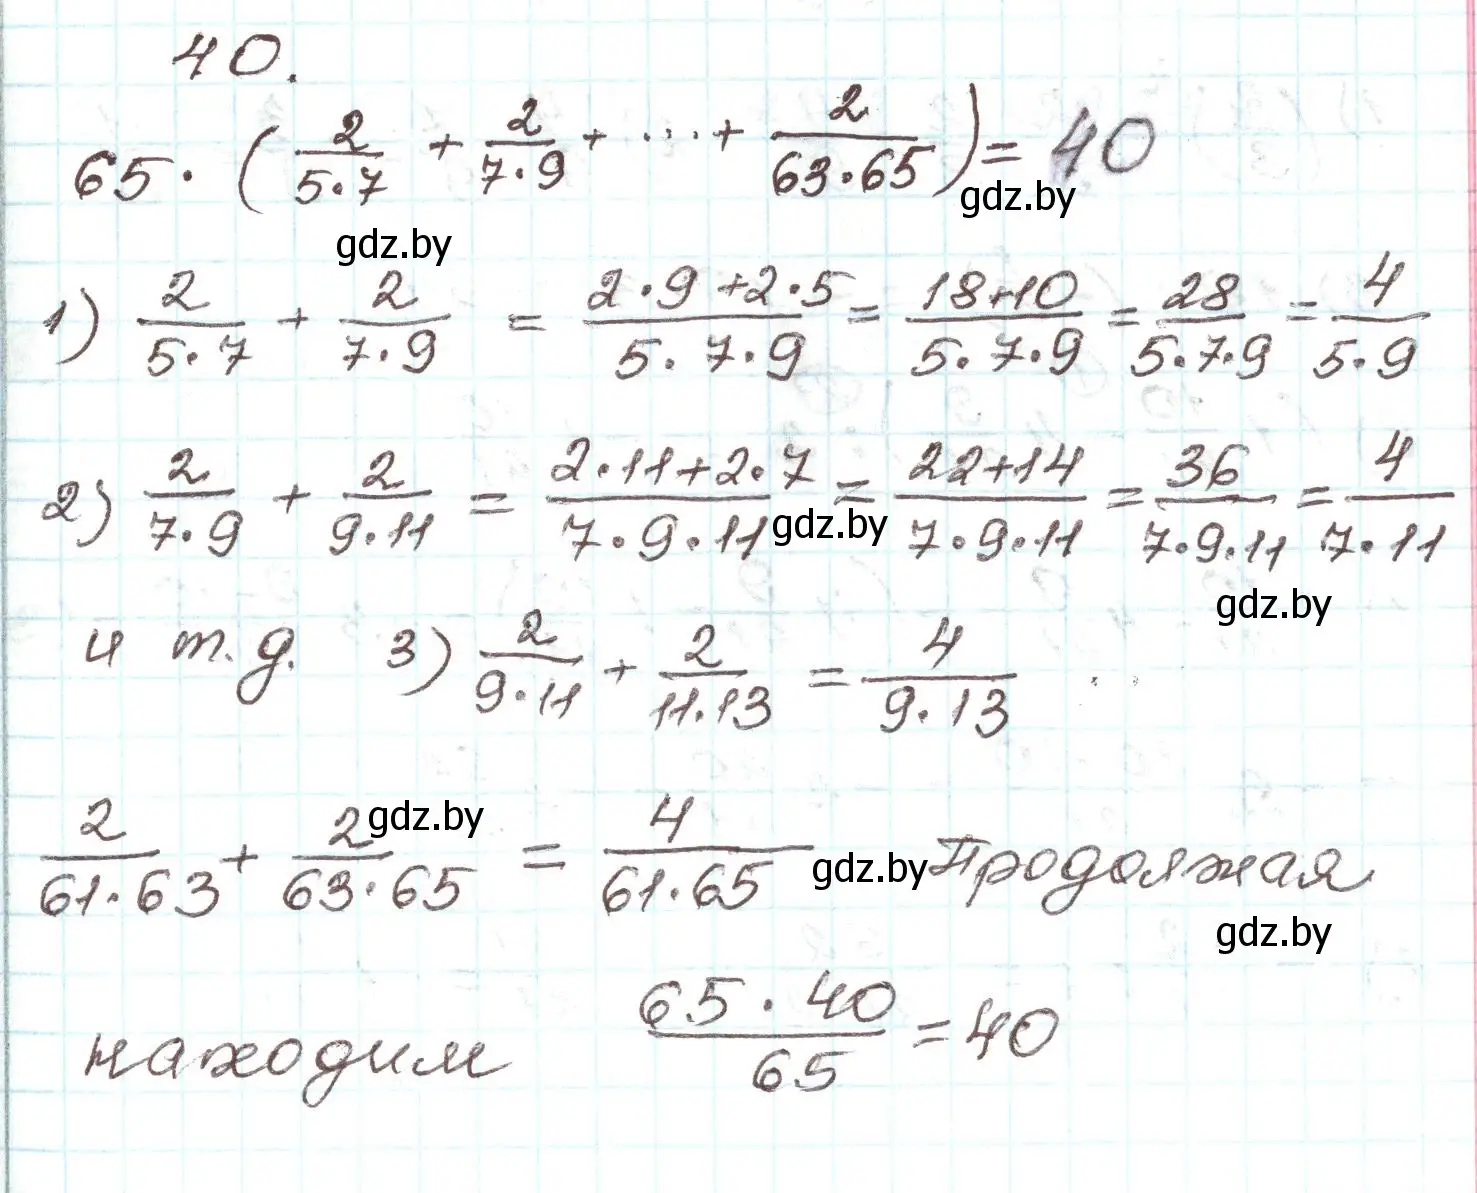 40.
65 · (2/(5·7) + 2/(7·9) + ... + 2/(63·65)) = 40
gdz.by
gdz.by
1) 2/(5·7) + 2/(7·9) = (2·9+2·5)/(5·7·9) = (18+10)/(5·7·9) = 28/(5·7·9) = 4/(5·9)
2) 2/(7·9) + 2/(9·11) = (2·11+2·7)/(7·9·11) = (22+14)/(7·9·11) = 36/(7·9·11) = 4/(7·11)
gdz.by
gdz.by
и т.д. 3) 2/(9·11) + 2/(11·13) = 4/(9·13) ...
2/(61·63) + 2/(63·65) = 4/(61·65) Продолжая
gdz.by
gdz.by
gdz.by
находим (65·40)/65 = 40